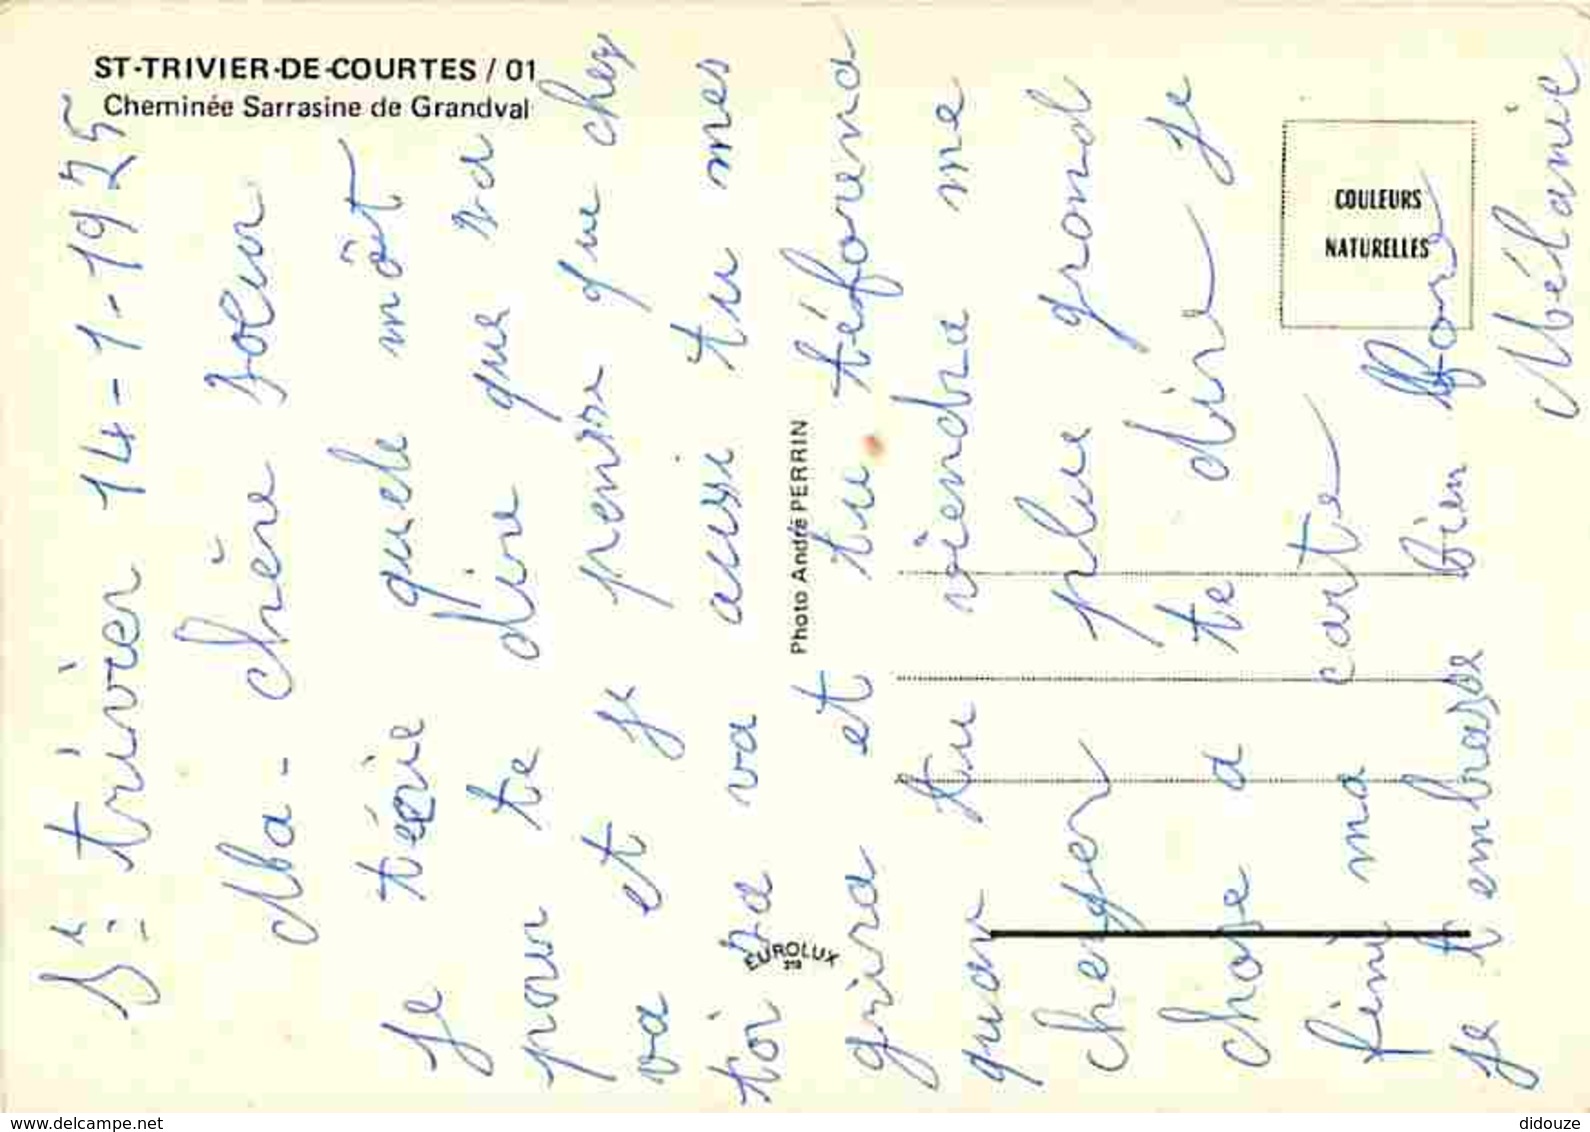 ST-TRIVIER-DE-COURTES / 01
Cheminée Sarrasine de Grandval
COULEURS
NATURELLES
Photo André PERRIN
EUROLUX
St trivier 14-1-1975
Ma-chère soeur
Je técrie quele môt
pour te dire que sa
va et je pensse que chez
toi sa va aussi tu mes
grira et tu téfouma
quan tu viendra me
cherger plue grand
chose a te dire je
fini ma carte
je t embrasse bien fore
Mélanie
www.delcampe.net
didouze